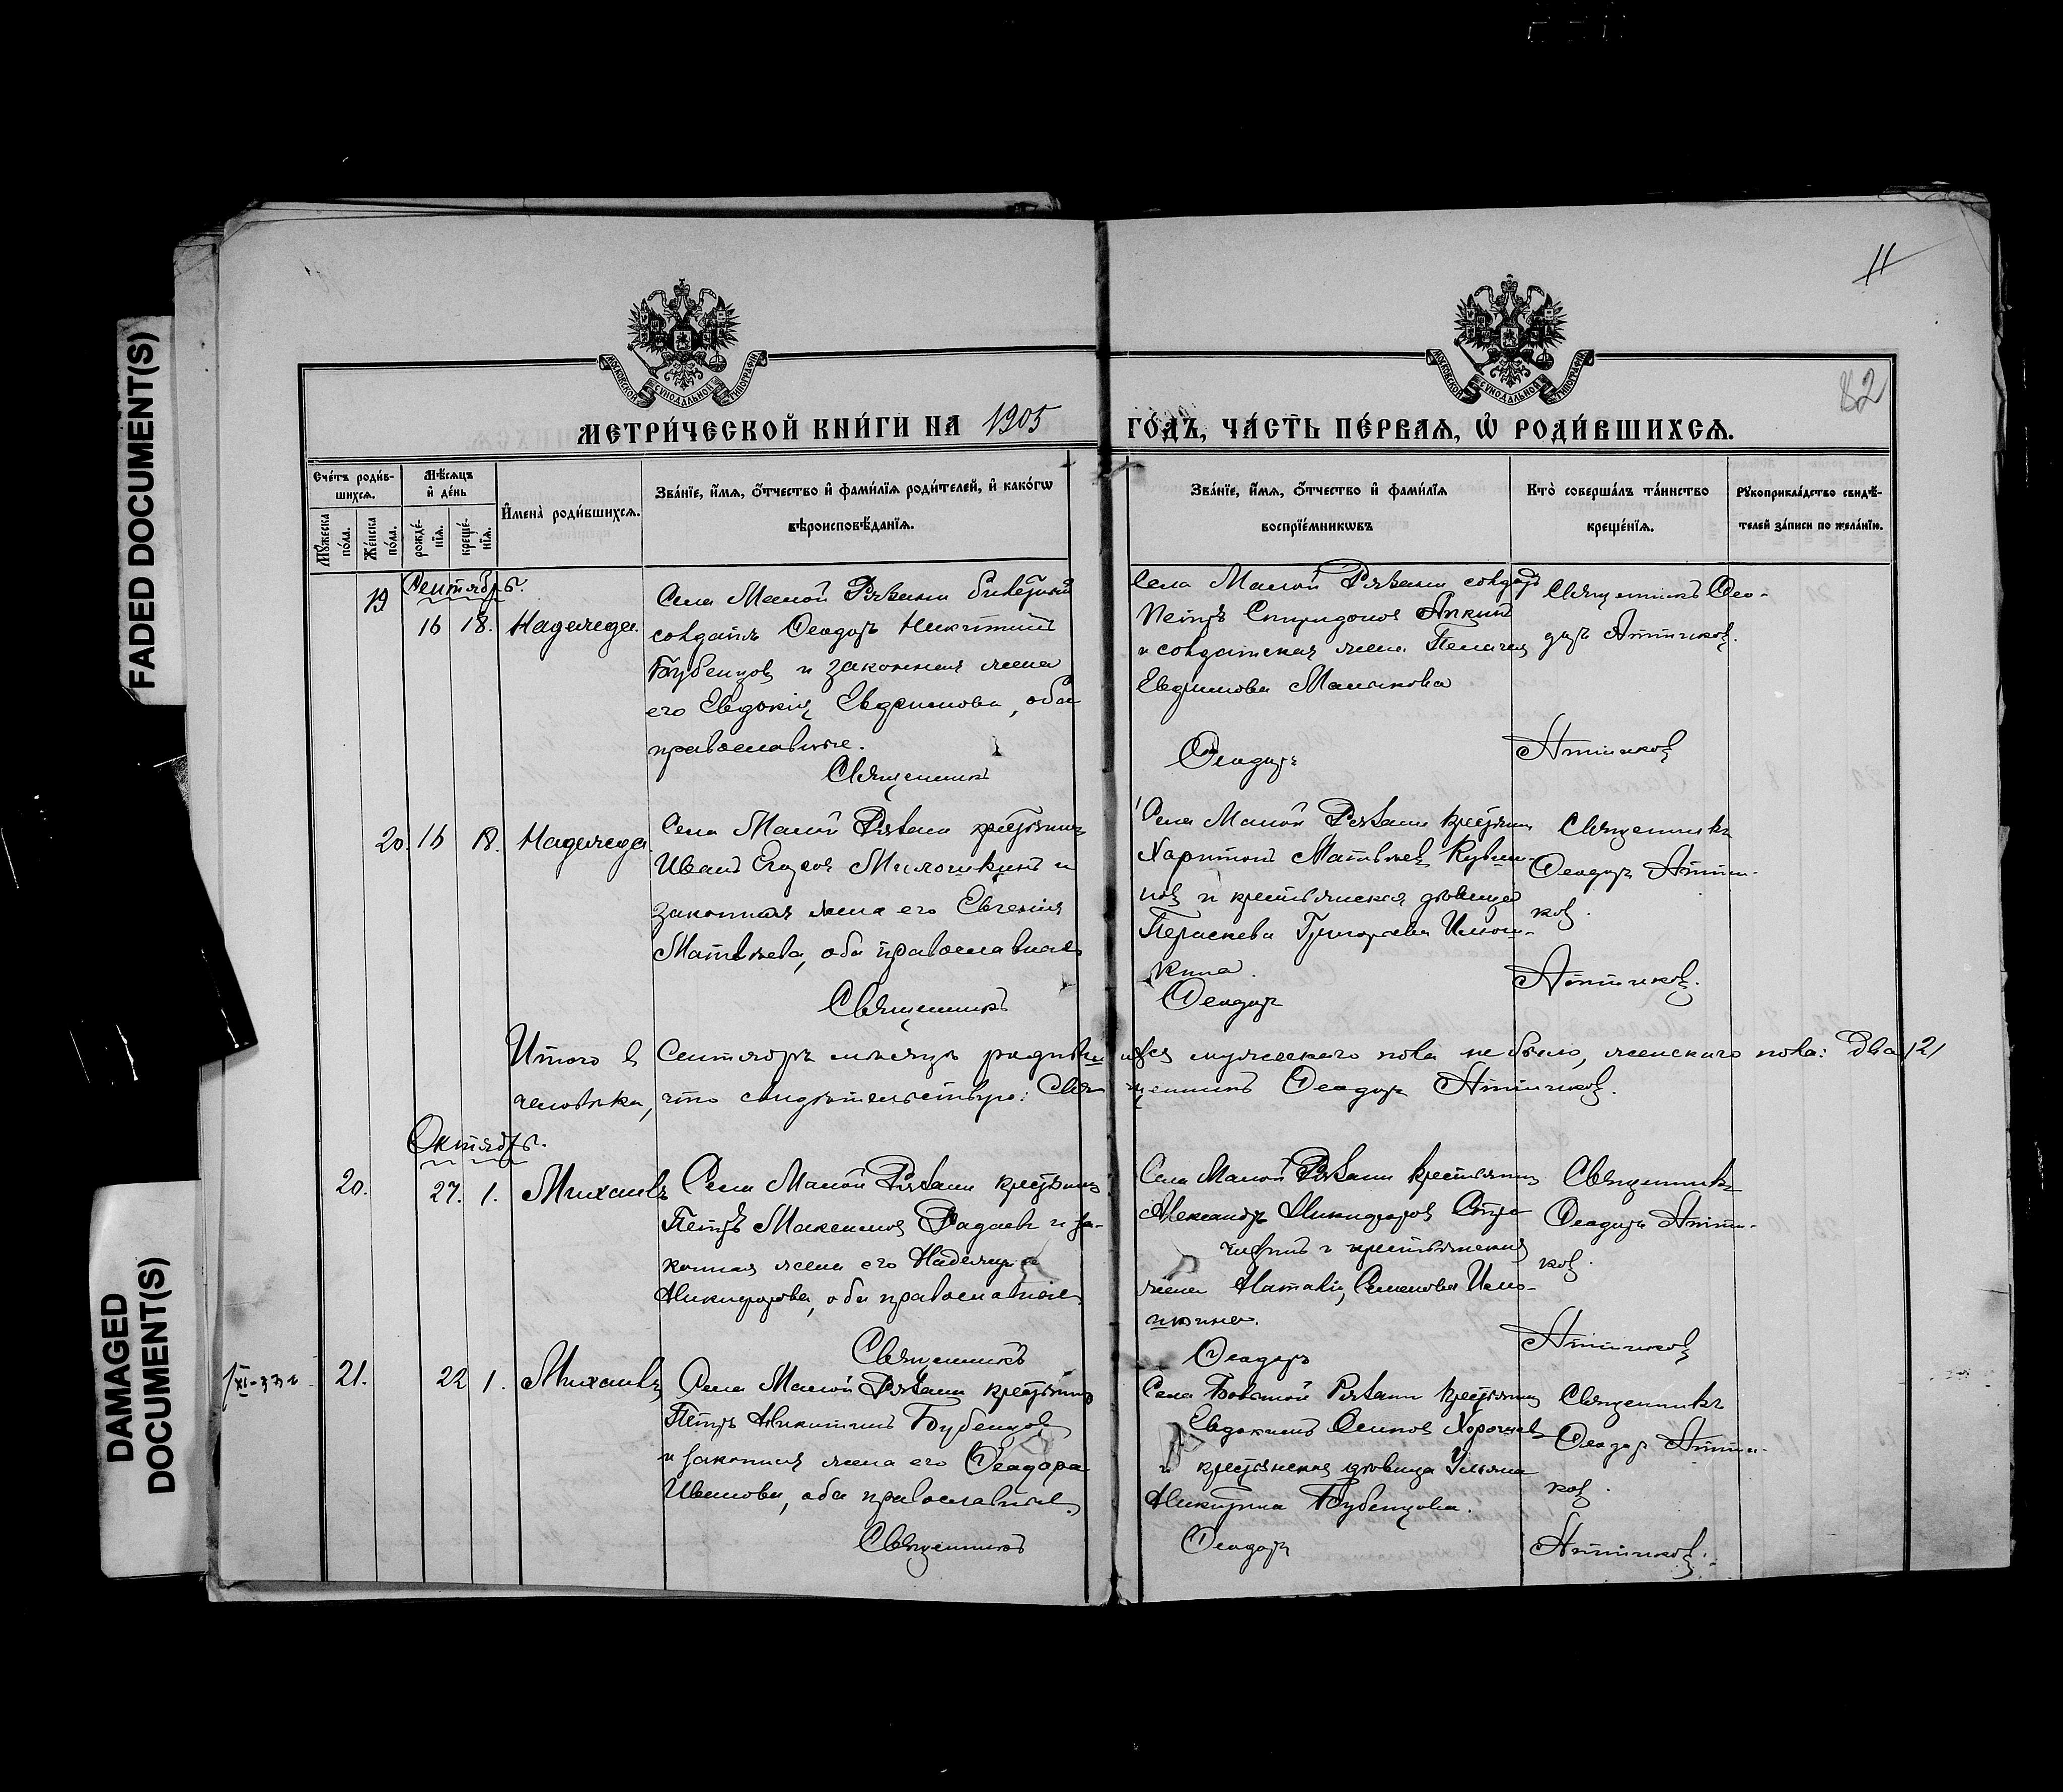 FADED DOCUMENT(S)
DAMAGED
DOCUMENT(S)
11
82
МОСКОВСКОЙ СѴНОДАЛЬНОЙ ТИПОГРАФІИ
МОСКОВСКОЙ СѴНОДАЛЬНОЙ ТИПОГРАФІИ
МЕТРИ́ЧЕСКОЙ КНИ́ГИ НА 1905 ГО́ДЪ, ЧА́СТЬ ПЕ́РВАѦ, Ѡ҆ РОДИ́ВШИХСѦ.
Сче́тъ роди́в-
шихсѧ.
Мꙋ́жеска
по́ла.
Же́нска
по́ла.
Мѣ́сѧцъ
и҆ де́нь
рожде́-
нїѧ.
креще́-
нїѧ.
И҆мена̀ роди́вшихсѧ.
Зва́нїе, и҆́мѧ, ѻ҆́тчество и҆ фами́лїѧ роди́телей, и҆ како́гѡ
вѣроисповѣ́данїѧ.
Зва́нїе, и҆́мѧ, ѻ҆́тчество и҆ фами́лїѧ
воспрїе́мникѡвъ
Кто̀ соверша́лъ та́инство
креще́нїѧ.
Рꙋкоприкла́дство свидѣ́-
телей за́писи по жела́нїю.
Сентябрь.
19
16 18. Надежда.
Села Малой Рязани билетный
солдатъ Ѳеодоръ Никитинъ
Бубенцовъ и законная жена
его Евдокія Евфимова, оба
православные.
Священникъ
Села Малой Рязани солдатъ
Петръ Спиридоновъ
и солдатская жена Пелагея
Евфимова Малыкова
Ѳеодоръ
Священникъ Ѳео-
доръ Аттиковъ.
Аттиковъ
20. 16 18. Надежда
Села Малой Рязани крестьянинъ
Иванъ Егоровъ Милошкинъ и
законная жена его Евгенія
Матвѣева, оба православные
Священникъ
Села Малой Рязани крестьянинъ
Харитонъ Матвѣевъ
и крестьянская дѣвица
Параскева Григорьева
кина.
Ѳеодоръ
Священникъ
Ѳеодоръ Атти-
ковъ.
Аттиковъ.
Итого въ Сентябрѣ мѣсяцѣ родившихся мужескаго пола не было, женскаго пола: два /2/
человѣка, что свидѣтельствую: Священникъ Ѳеодоръ Аттиковъ.
Октябрь.
20. 27. 1. Михаилъ
Села Малой Рязани крестьянинъ
Петръ Максимовъ Радаевъ и за-
конная жена его Надежда
Никифорова, оба православные
Священникъ
Села Малой Рязани крестьянинъ
Александръ Никифоровъ
и крестьянская
жена Наталія Семенова
шкина.
Ѳеодоръ
Священникъ
Ѳеодоръ Атти-
ковъ.
Аттиковъ
21. 22 1. Михаилъ
Села Малой Рязани крестьянинъ
Петръ Никитинъ Бубенцовъ
и законная жена его Ѳеодора
Иванова, оба православные
Священникъ
Села Большой Рязани крестьянинъ
Евдокимъ Осиповъ
и крестьянская дѣвица Ульяна
Никитина Бубенцова.
Ѳеодоръ
Священникъ
Ѳеодоръ Атти-
ковъ.
Аттиковъ.